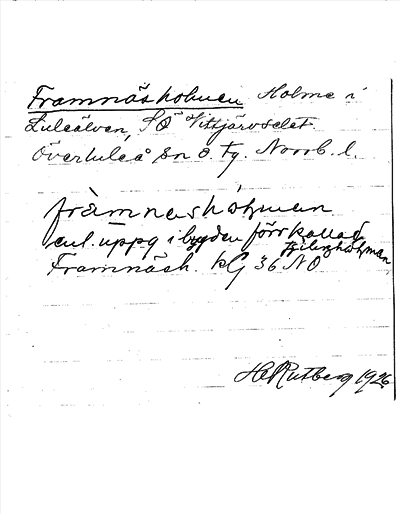 Framnäsholmen Holme i
Luleälven, SO Vittjärvselet.
Överluleå sn o. tg. Norrb. l.
framneshòlman
enl. uppg i bygden förr kallad
Framnäsh. kG 36 NO
H Rutberg 1926